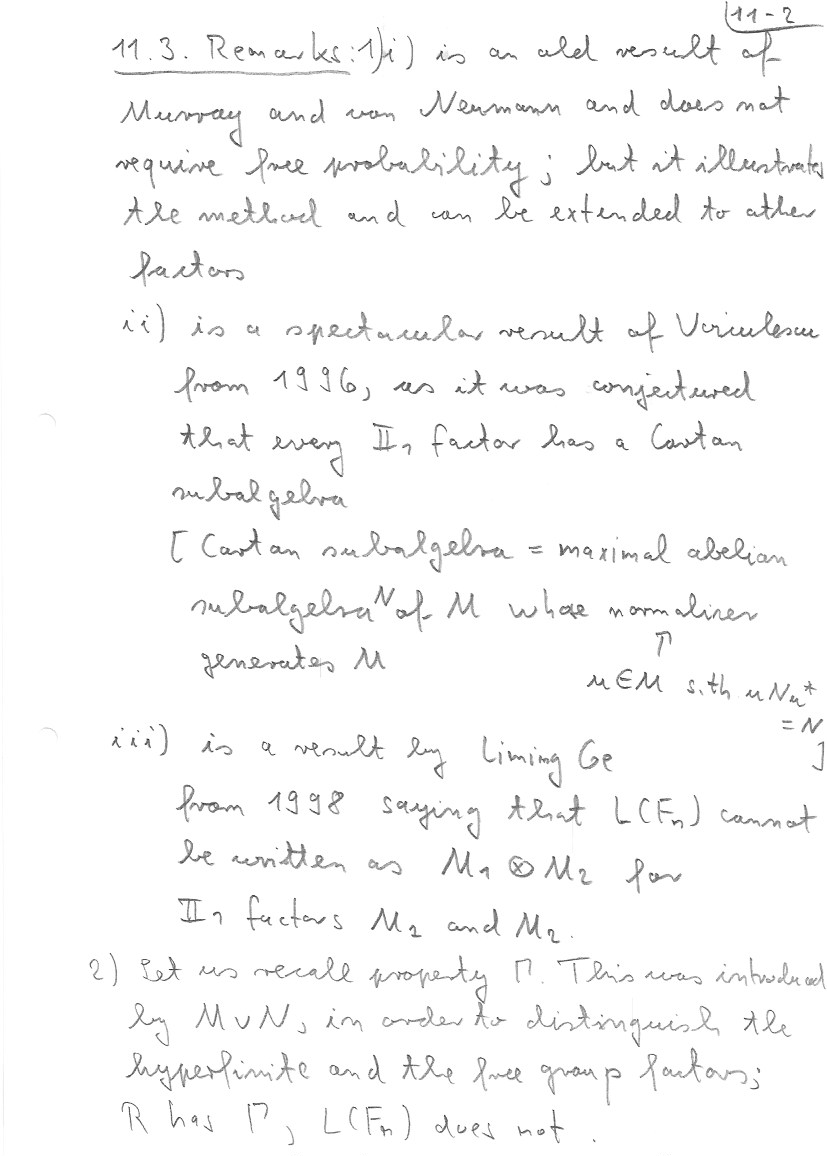 11-2
11.3. Remarks: 1) i) is an old result of
Murray and von Neumann and does not
require free probability; but it illustrates
the method and can be extended to other
factors
ii) is a spectacular result of Voiculescu
from 1996, as it was conjectured
that every II₁ factor has a Cartan
subalgebra
[ Cartan subalgebra = maximal abelian
subalgebra N of M whose normalizer
↑
generates M
u ∈ M s.th. uNu*
= N
]
iii) is a result by Liming Ge
from 1998 saying that L(Fₙ) cannot
be written as M₁ ⊗ M₂ for
II₁ factors M₁ and M₂.
2) Let us recall property Γ. This was introduced
by MvN, in order to distinguish the
hyperfinite and the free group factors;
R has Γ, L(Fₙ) does not.